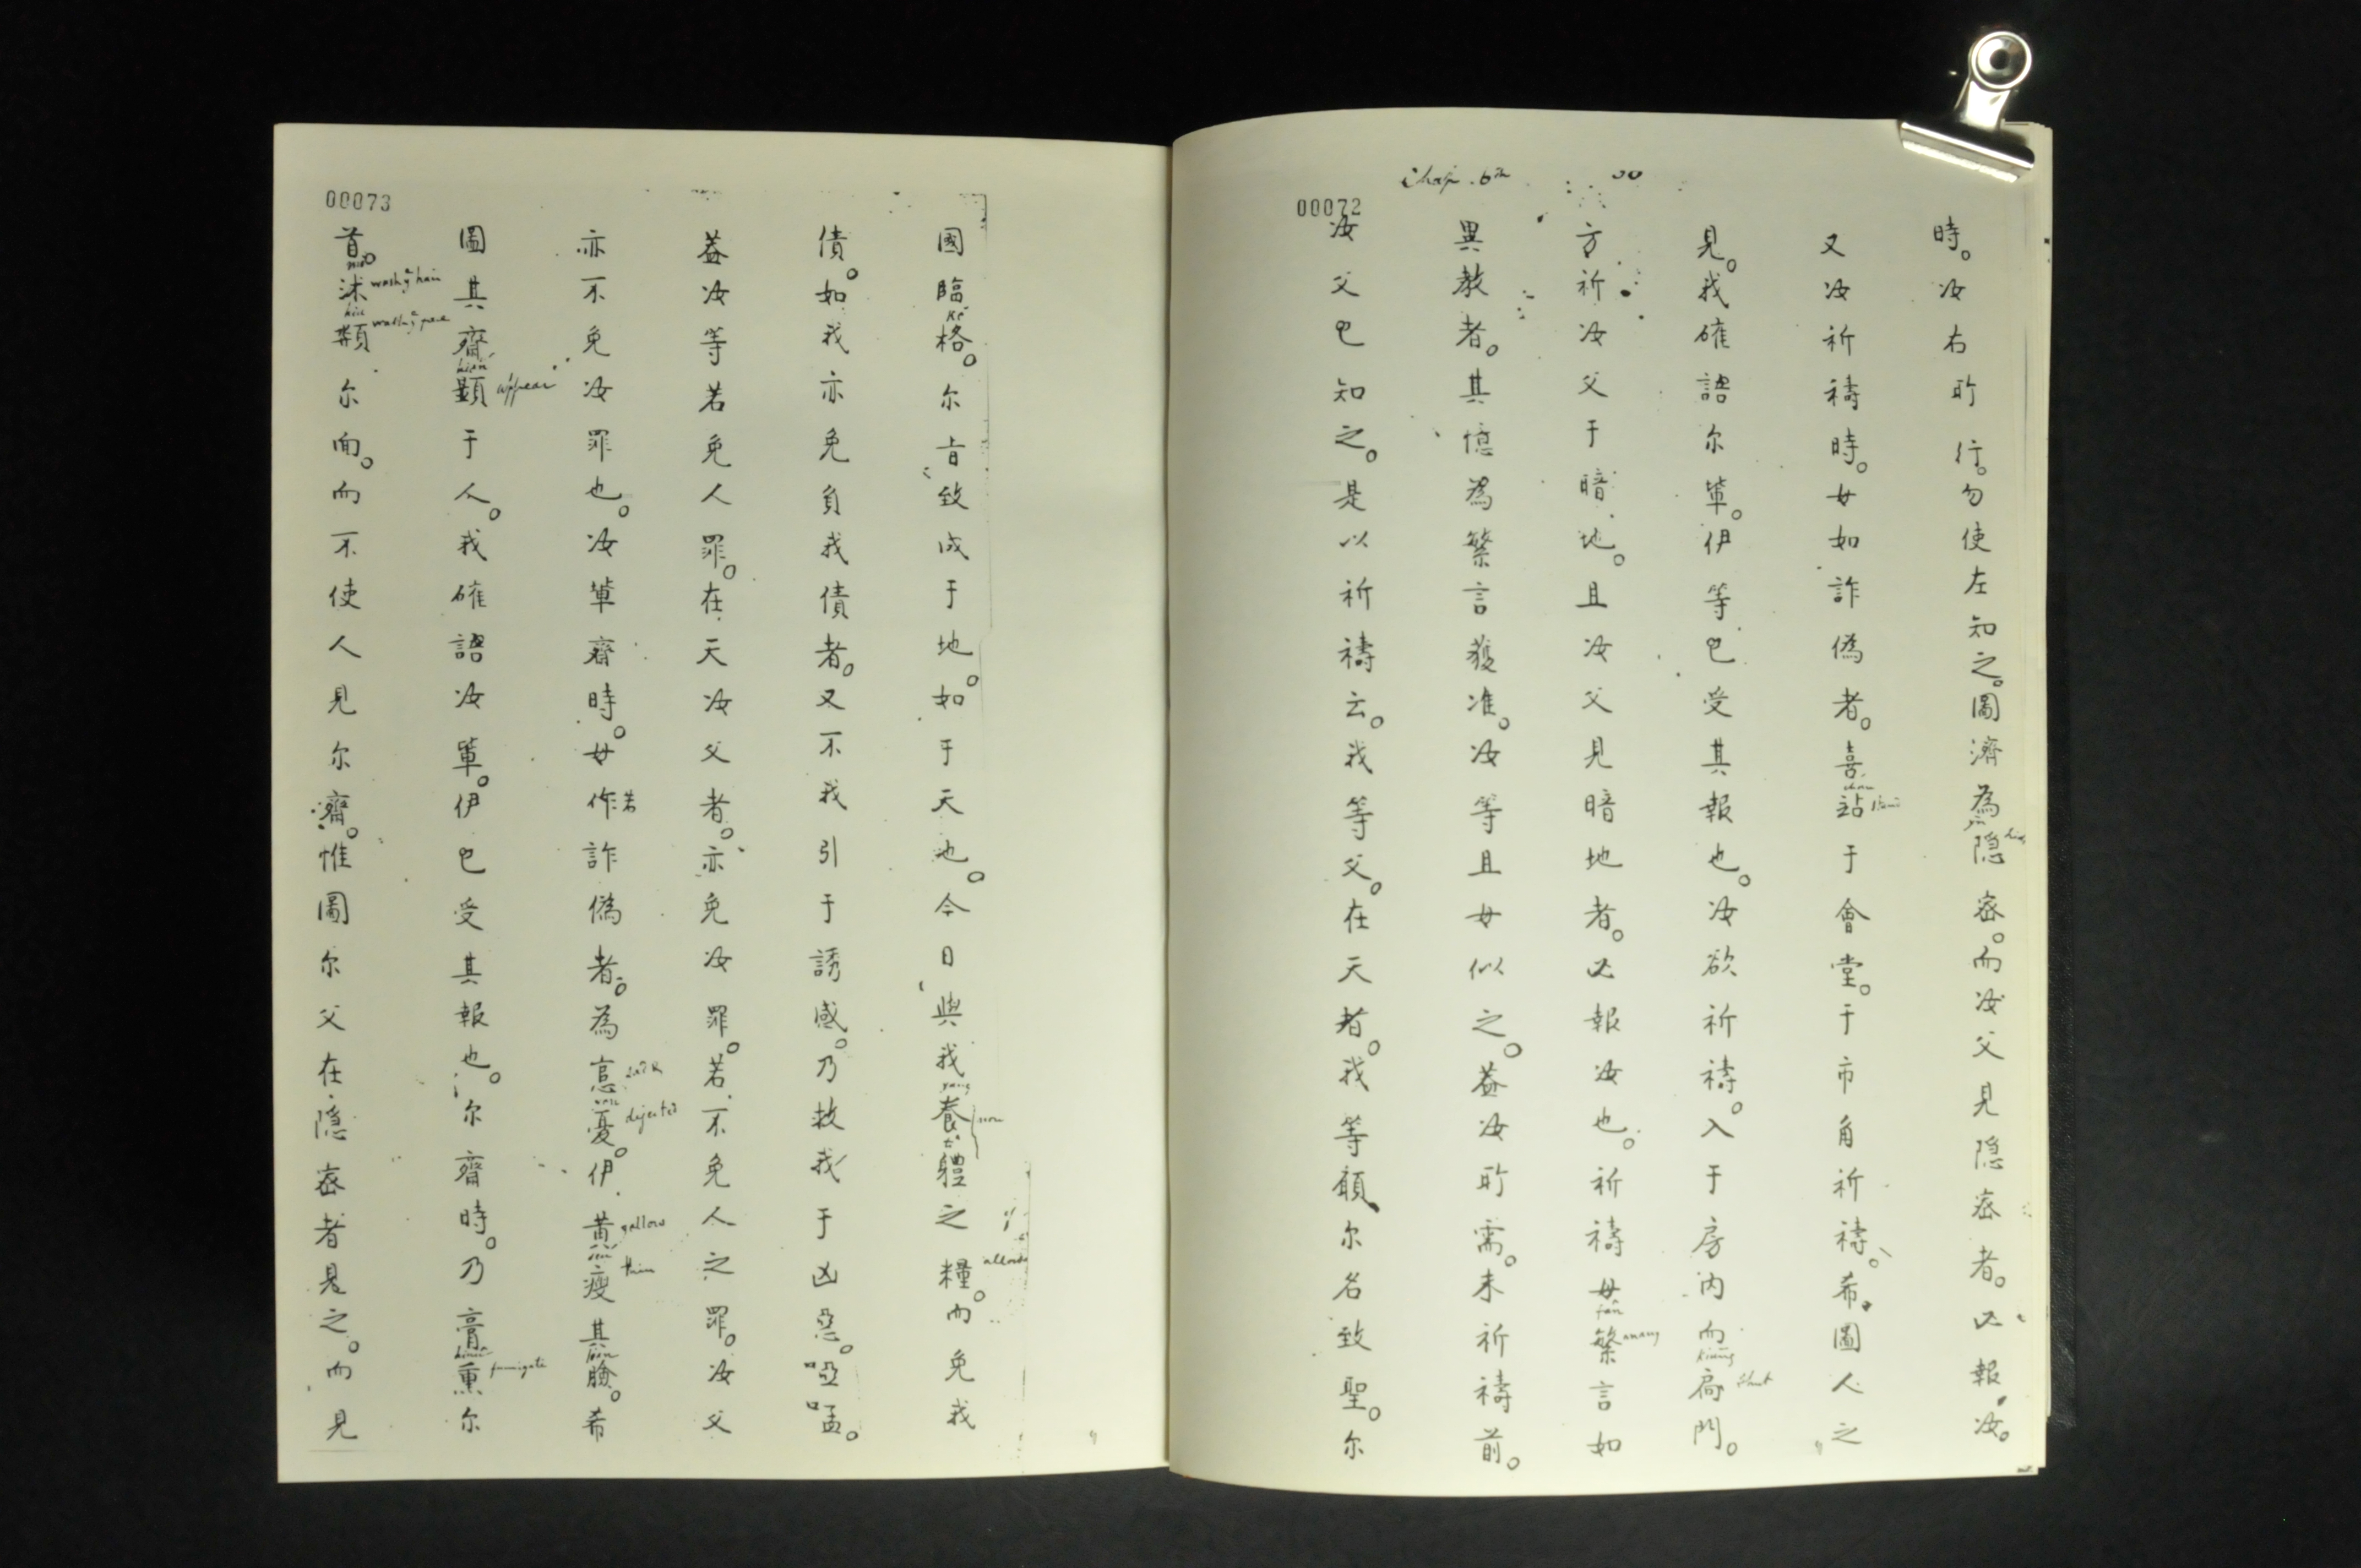 Chap. 6th 30
00072
時。汝右所行。勿使左知之。圖濟為隱密。而汝父見隱密者。必報汝。
又汝祈禱時。毋如詐偽者。喜站于會堂。于市角祈禱。希圖人之
見。我確語尔輩。伊等已受其報也。汝欲祈禱。入于房內而扃門。
shut
方祈汝父于暗地。且汝父見暗地者。必報汝也。祈禱毋繁言如
fan
many
異教者。其憶為繁言獲准。汝等且毋似之。蓋汝所需。未祈禱前。
汝父已知之。是以祈禱云。我等父。在天者。我等願尔名致聖。尔
00073
國臨格。尔旨致成于地。如于天也。今日與我養體之糧。而免我
債。如我亦免負我債者。又不我引于誘感。乃救我于凶惡。啞孟。
蓋汝等若免人罪。在天汝父者。亦免汝罪。若不免人之罪。汝父
亦不免汝罪也。汝輩齋時。毋作詐偽者。為悥憂。伊黃瘦其臉。希
若
dejected
yellow
thin
圖其齋顯于人。我確語汝輩。伊已受其報也。尔齋時。乃膏熏尔
hien
appear
fumigate
首。沬頮尔面。而不使人見尔齋。惟圖尔父在隱密者見之。而見